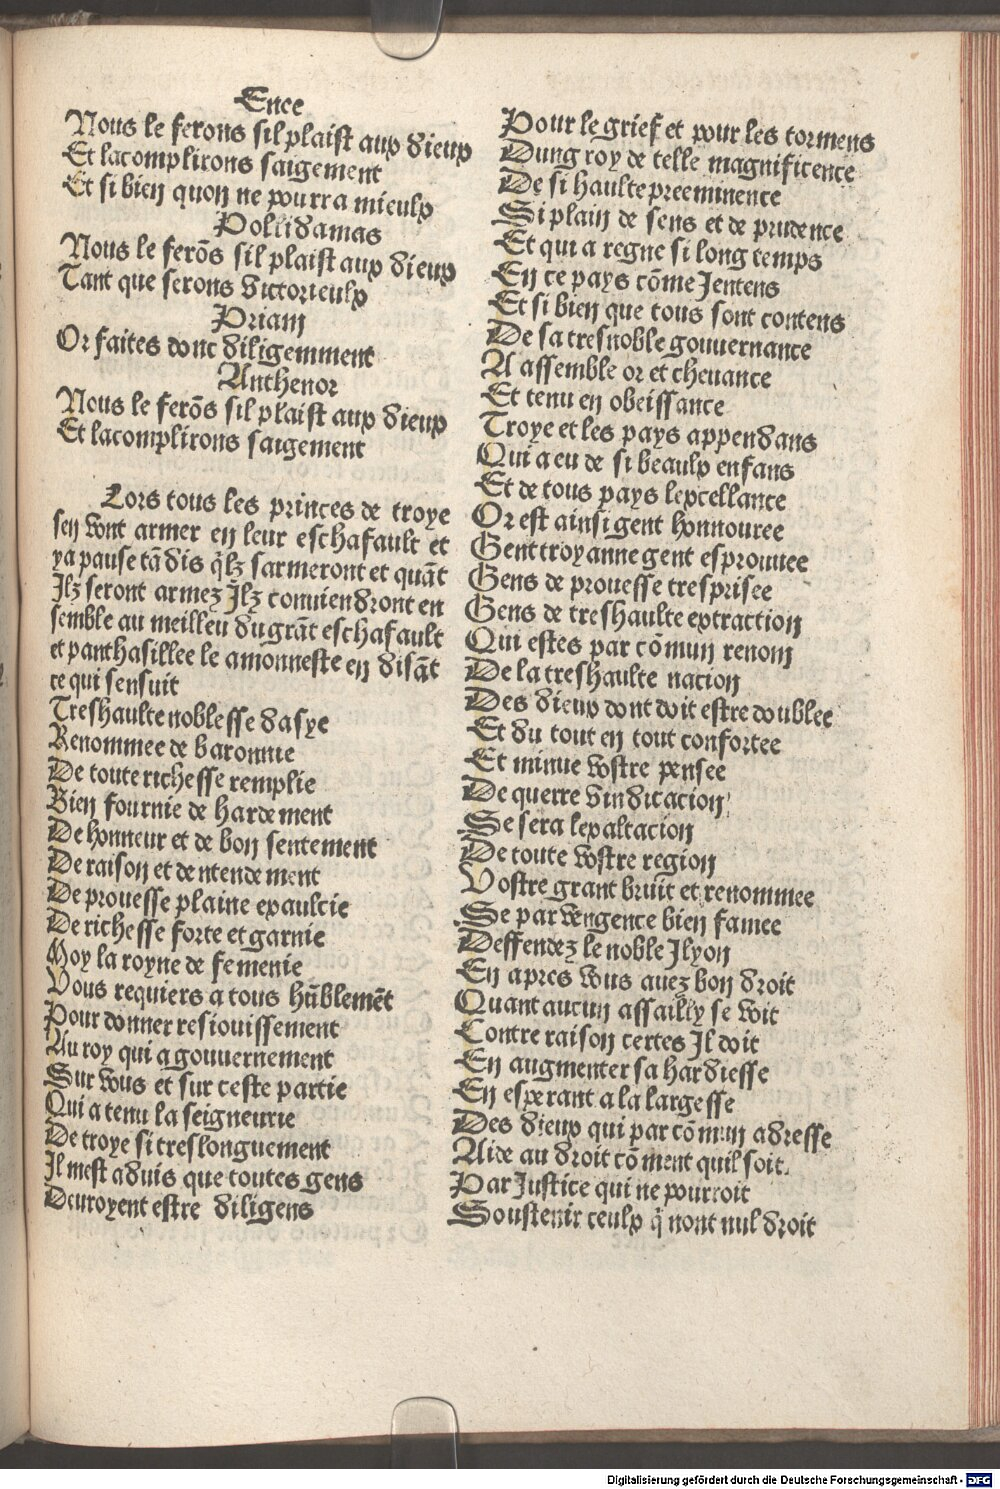 Enee
Nous le ferons sil plaist aux dieux
Et lacomplirons saigement
Et si bien quon ne pourra mieulx
Pollidamas
Nous le ferõs sil plaist aux dieux
Tant que serons victorieulx
Priam
Or faites donc diligemment
Anthenor
Nous le ferõs sil plaist aux dieux
Et lacomplirons saigement
Lors tous les princes de troye
sen vont armer en leur eschafault et
ya pause tãdis q̃lz sarmeront et quãt
Jlz seront armez Jlz conviendront en
semble au meilleu du grãt eschafault
et panthasillee le amonneste en disãt
ce qui sensuit
Treshaulte noblesse dasye
Renommee de baronnie
De toute richesse remplie
Bien fournie de hardement
De honneur et de bon sentement
De raison et de ntendement
De prouesse plaine exaulcie
De richesse forte et garnie
Moy la royne de femenie
Vous requiers a tous hũblemẽt
Pour donner resiouissement
Au roy qui a gouuernement
Sur vous et sur ceste partie
Qui a tenu la seigneurie
De troye si treslonguement
Il mest aduis que toutes gens
Deuroyent estre diligens
Pour le grief et pour les tormens
Dung roy de telle magnificence
De si haulte preeminence
Si plain de sens et de prudence
Et qui a regne si long temps
En ce pays cõme Jentens
Et si bien que tous sont contens
De sa tresnoble gouuernance
A assemble or et cheuance
Et tenu en obeissance
Troye et les pays appendans
Qui a eu de si beaulx enfans
Et de tous pays lexcellance
Or est ainsi gent honnouree
Gent troyanne gent esprouuee
Gens de prouesse tresprisee
Gens de treshaulte extraction
Qui estes par cõmun renom
De la treshaulte nacion
Des dieux dont doit estre doublee
Et du tout en tout confortee
Et minue vostre pensee
De querre vindicacion
Se sera lexaltacion
De toute vostre region
Vostre grant bruit et renommee
Se par vengence bien famee
Deffendez le noble Jlyon
En apres vous auez bon droit
Quant aucun assailly se voit
Contre raison certes Jl doit
En augmenter sa hardiesse
En esperant a la largesse
Des dieux qui par cõmun adresse
Aide au droit cõment quil soit.
Par Justice qui ne pourroit
Soustenir ceulx q̃ nont nul droit
Digitalisierung gefördert durch die Deutsche Forschungsgemeinschaft - DFG